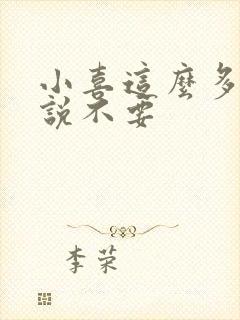 小喜這麼多
說不要
李荣